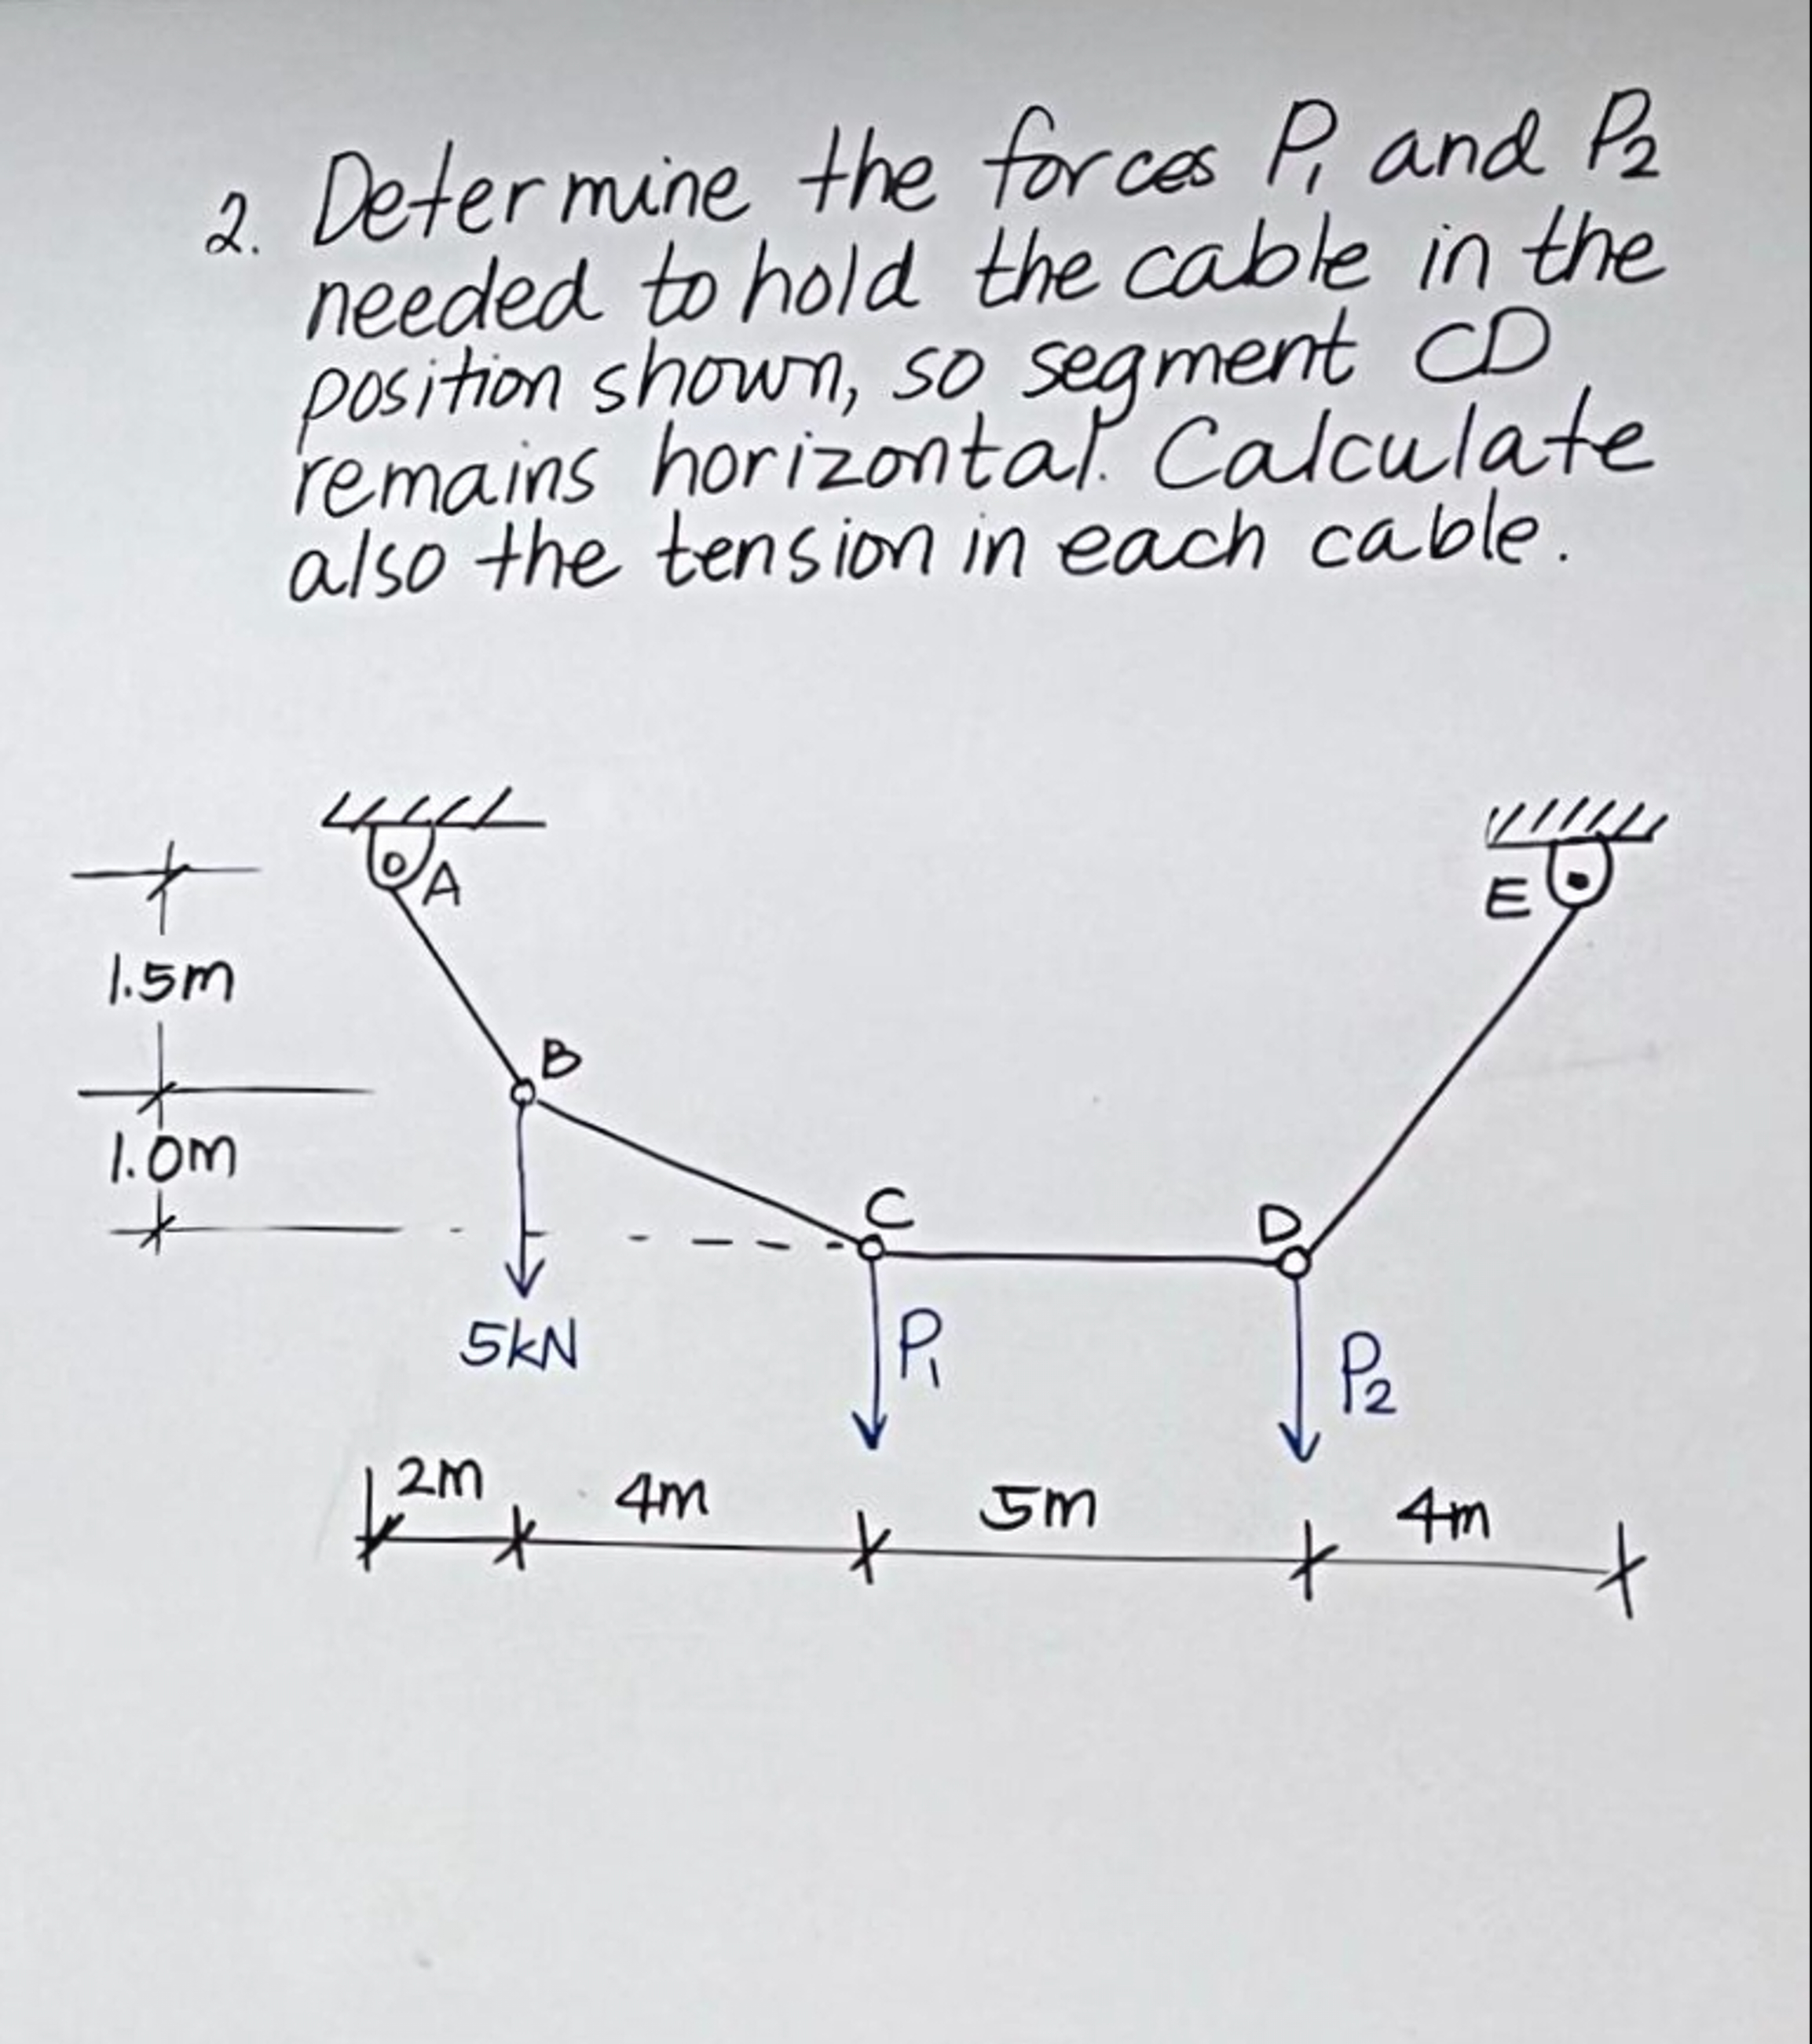 2. Determine the forces P₁ and P₂
needed to hold the cable in the
position shown, so segment CD
remains horizontal. Calculate
also the tension in each cable.
A
E
1.5m
B
1.0m
C
D
5kN
P₁
P₂
2m
4m
5m
4m